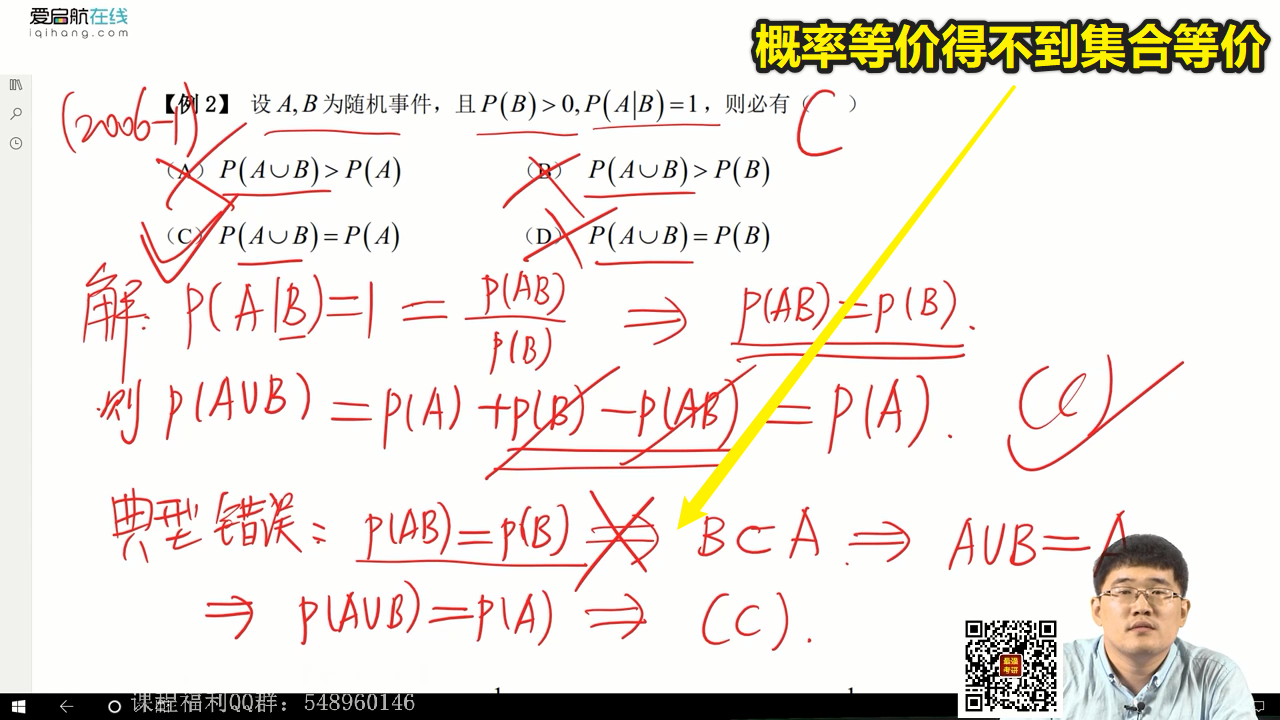 爱启航在线
iqihang.com
概率等价得不到集合等价
(2006-1)
【例2】 设 A, B 为随机事件，且 P(B)>0, P(A|B)=1，则必有（ C ）
（A） P(A∪B)>P(A) （B） P(A∪B)>P(B)
（C） P(A∪B)=P(A) （D） P(A∪B)=P(B)
解: P(A|B)=1=P(AB)/P(B) ⇒ P(AB)=P(B).
则 P(A∪B)=P(A)+P(B)-P(AB)=P(A). (C)
典型错误: P(AB)=P(B) ⇒ B⊂A ⇒ A∪B=A
⇒ P(A∪B)=P(A) ⇒ (C).
最强考研
课程福利QQ群：548960146